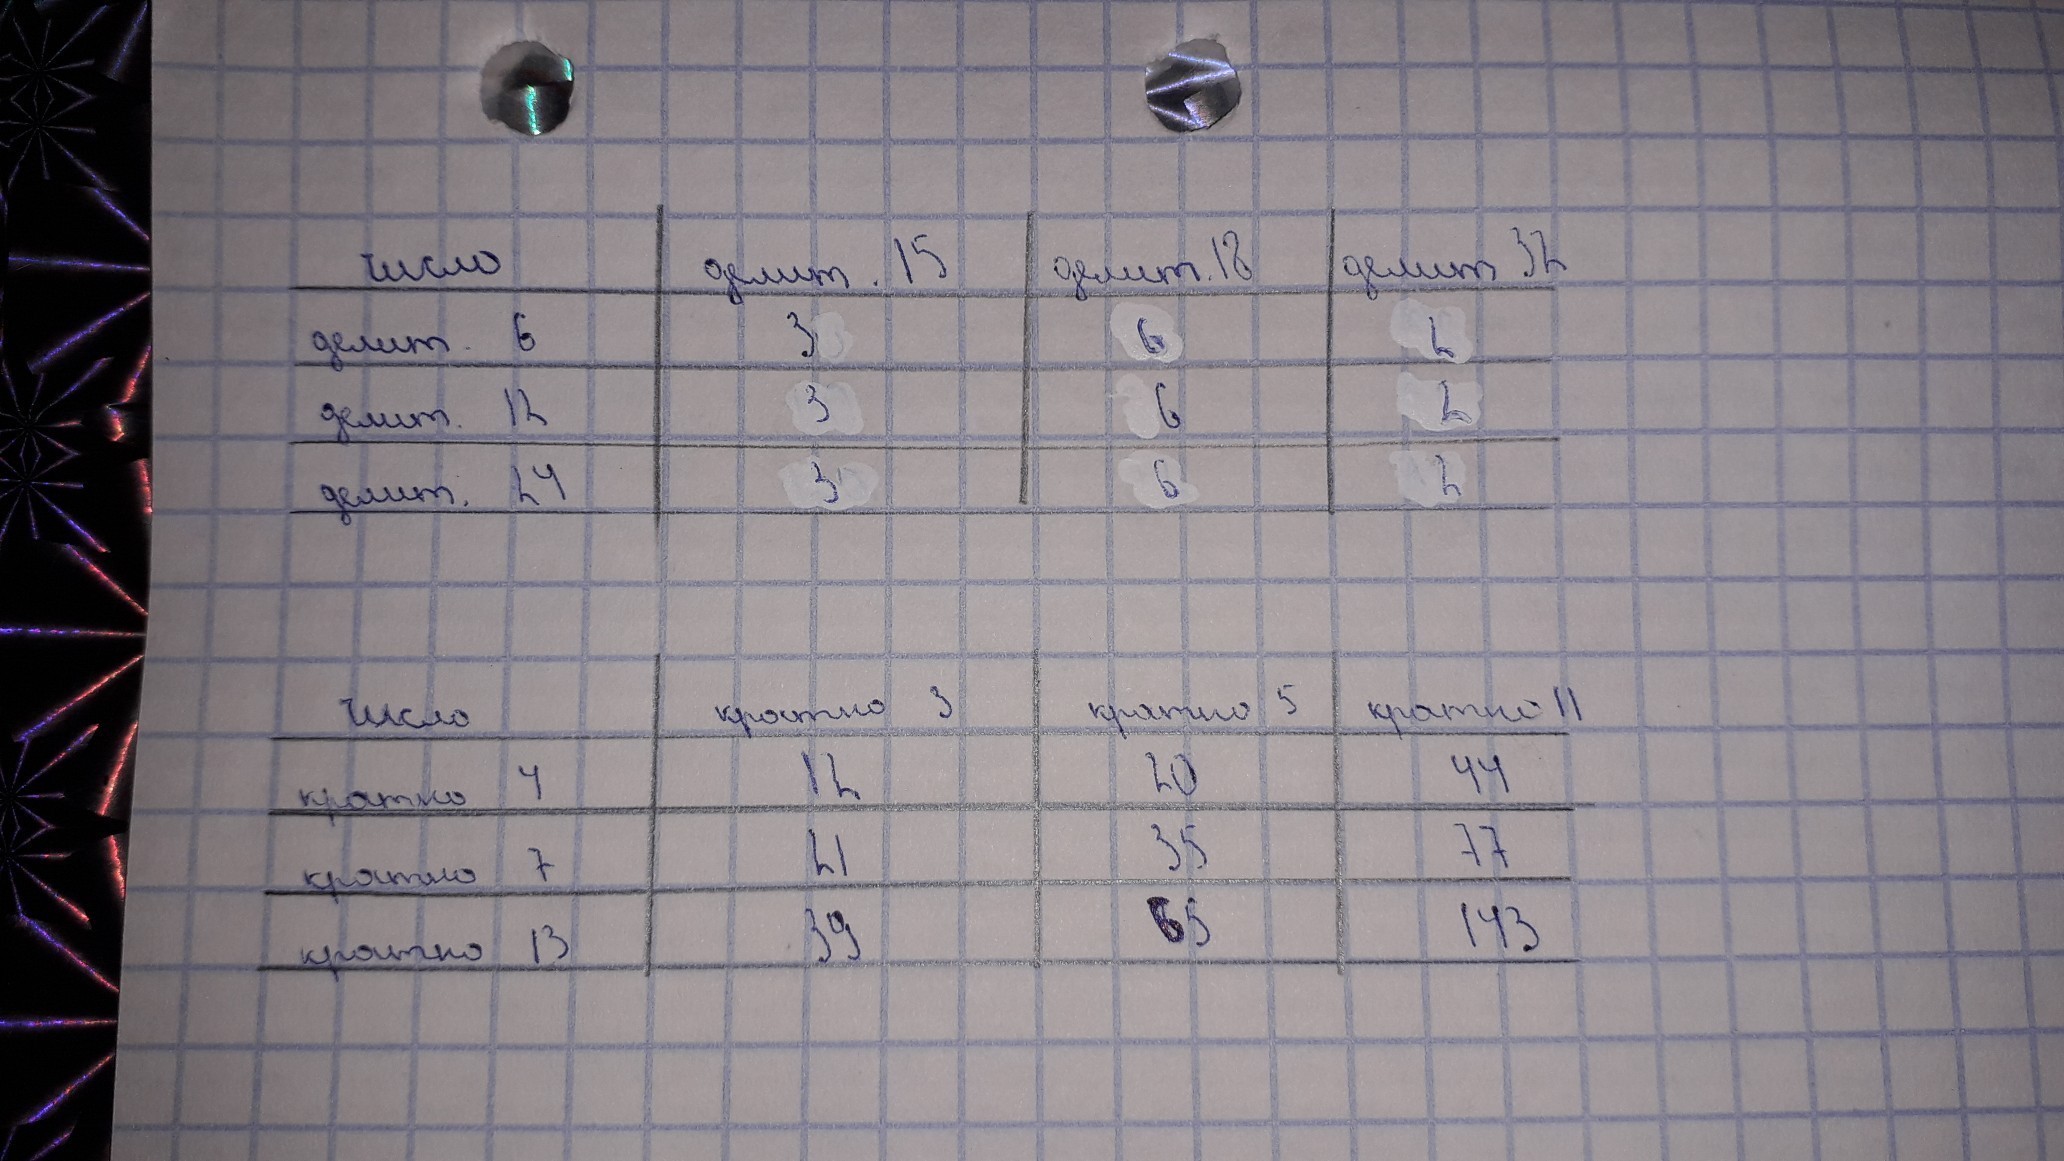 число делит. 15 делит. 18 делит 32
делит. 6 3 6 2
делит. 12 3 6 2
делит. 24 3 6 2
число кратно 3 кратно 5 кратно 11
кратно 4 12 20 44
кратно 7 21 35 77
кратно 13 39 65 143